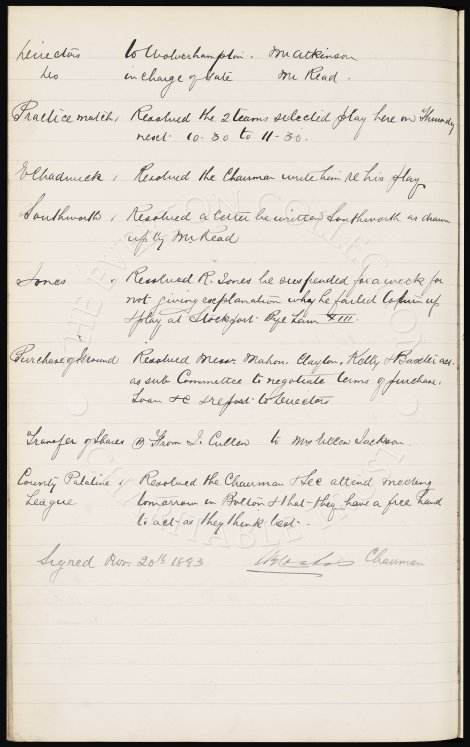 Directors to Wolverhampton. Mr Atkinson
Do in charge of Gate Mr Read.
Practice match, Resolved the 2 teams selected play here on Thursday
next. 10-30 to 11-30.
E Chadwick, Resolved the Chairman write him re his play
Southworth, Resolved a letter be written Southworth as drawn
up by Mr Read
Jones, Resolved R. Jones be suspended for a week for
not giving explanation why he failed to turn up
& play at Stockport. Bye Law XIII.
Purchase of Ground Resolved Messrs. Mahon, Clayton, Kelly & Baxter act
as sub Committee to negotiate terms of purchase,
Loan &c & report to Directors
Transfer of Shares From J. Cullen to Mrs Ellen Jackson.
County Palatine, Resolved the Chairman & Sec attend meeting
League tomorrow in Bolton & that they have a free hand
to act as they think best.
Signed Nov. 20th 1893 Chairman
THE EVERTON COLLECTION
CHARITABLE TRUST